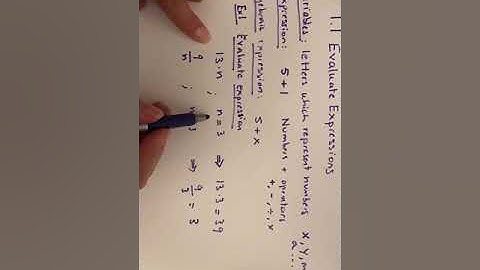 1.1 Evaluate Expressions
ariables: letters which represent numbers x, y, m
a...
xpression: 5+1 Numbers + operators
+, -, ÷, x
gebraic expression: 5+x
Ex1 Evaluate expression
13·n ; n=3 ⇒ 13·3=39
9/n ; 3 ⇒ 9/3 = 3